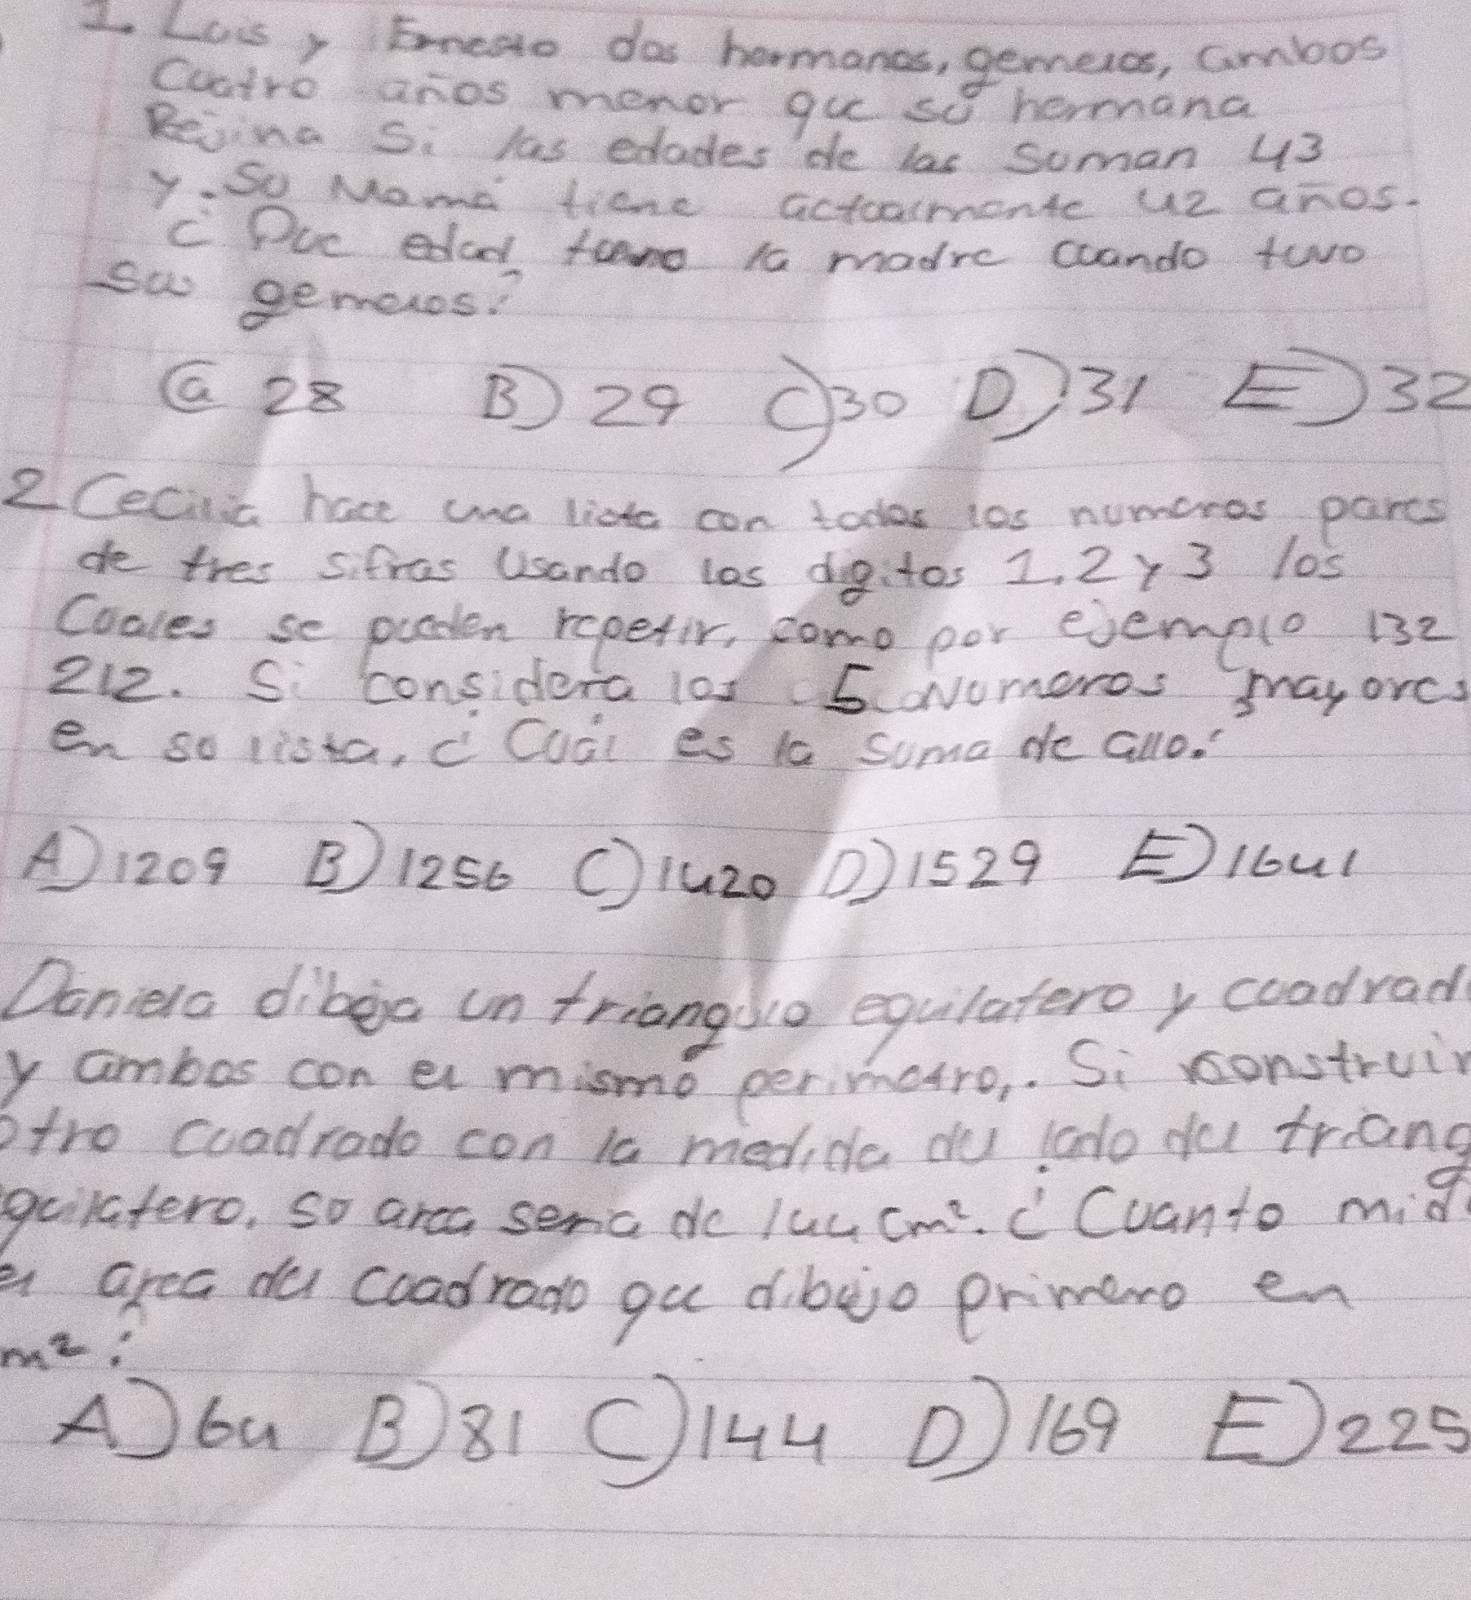 1. Lois y Ernesto dos hermanos, gemelos, ambos
Cuatro años menor que su hermana
Rejina Si las edades de las suman 43
y. So Mamá tiene actualmente 42 años.
¿ Que edad la madre cuando tuvo
sus gemelos?
a 28 B) 29 C) 30 D) 31 E) 32
2 Cecilia hace una lista con todos los numeros pares
de tres sifras Usando los digitos 1, 2 y 3 los
Cuales se pueden repetir, como por ejemplo 132
212. Si considera los 5 Numeros mayores
en so lista, ¿ Cuál es la suma de ello?
A) 1209 B) 1256 C) 1420 D) 1529 E) 1641
Daniela dibuja un triangulo equilatero y cuadrad
y ambos con el mismo perimetro,. Si construir
otro cuadrado con la medida del lado del triang
quilatero, so area seria de 144 cm². ¿ Cuanto mid
el area del cuadrado que dibujo primero en
m²?
A) 64 B) 81 C) 144 D) 169 E) 225